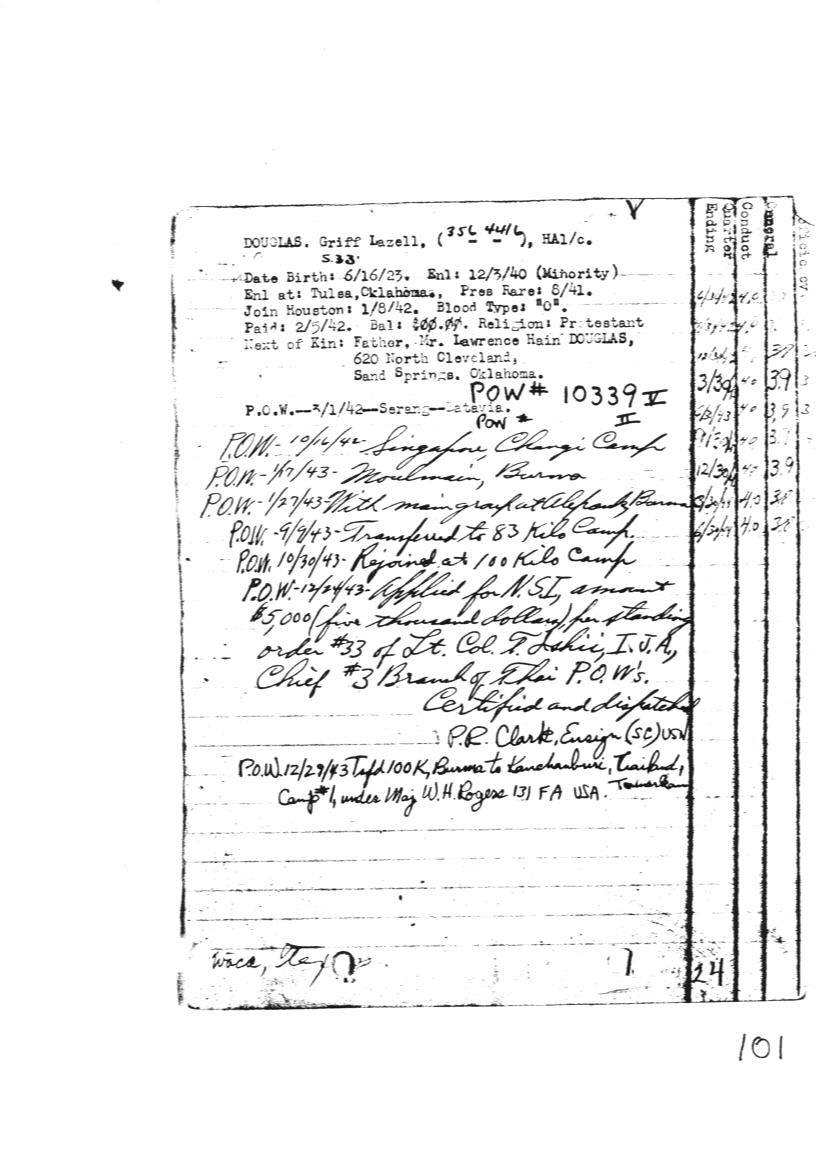 DOUGLAS. Griff Lazell, (356 44 16), HA1/c.
S.33.
Date Birth: 6/16/23. Enl: 12/3/40 (Minority)
Enl at: Tulsa,Oklahoma., Pres Rare: 8/41.
Join Houston: 1/8/42. Blood Type: "O".
Paid: 2/5/42. Bal: Religion: Protestant
Next of Kin: Father, Mr. Lawrence Hain DOUGLAS,
620 North Cleveland,
Sand Springs. Oklahoma.
POW# 10339 V
P.O.W.--3/1/42--Serang--Batavia.
POW # II
P.O.W.- 10/16/42- Singapore, Changi Camp
P.O.W.- 1/17/43- Moulmain, Burma
P.O.W.- 1/27/43-With main group at Alepauk, Burma
P.O.W.- 9/9/43- Transferred to 83 Kilo Camp.
P.O.W. 10/30/43- Rejoined at 100 Kilo Camp
P.O.W.-12/24/43-Applied for N.S.I, amount
$5,000 (five thousand dollars), per standing
order #33 of Lt. Col. T. Ishii, I.J.A,
Chief #3 Branch of Thai P.O.W's.
Certified and dispatched
P.R. Clark, Ensign (SC) USN
P.O.W. 12/29/43 Tsfd 100K, Burma to Kanchanburi, Thailand,
Camp #1, under Maj W.H. Rogers 131 FA USA.
Waco, Tex
Quarter Ending
Conduct
General
3/30 4.0 3.9
6/3/43 4.0 3.9 3
4.0 3.7
12/30 4.0 3.9
4.0 3.8
4.0 3.8
24
101